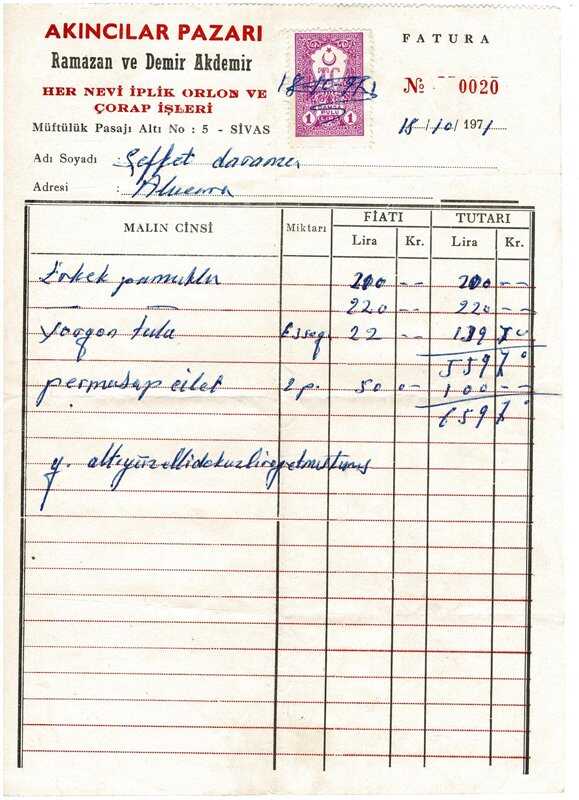 AKINCILAR PAZARI
Ramazan ve Demir Akdemir
HER NEVİ İPLİK ORLON VE
ÇORAP İŞLERİ
Müftülük Pasajı Altı No : 5 - SİVAS
18-10-971
1 1
FATURA
No 0020
18/10/1971
Adı Soyadı :
Adresi :
MALIN CİNSİ Miktarı FİATI TUTARI
Lira Kr. Lira Kr.
Erkek pamuklu 200 -- 200 --
220 -- 220 --
22 -- 139 70
559 70
2 p. 50 100 --
659 70